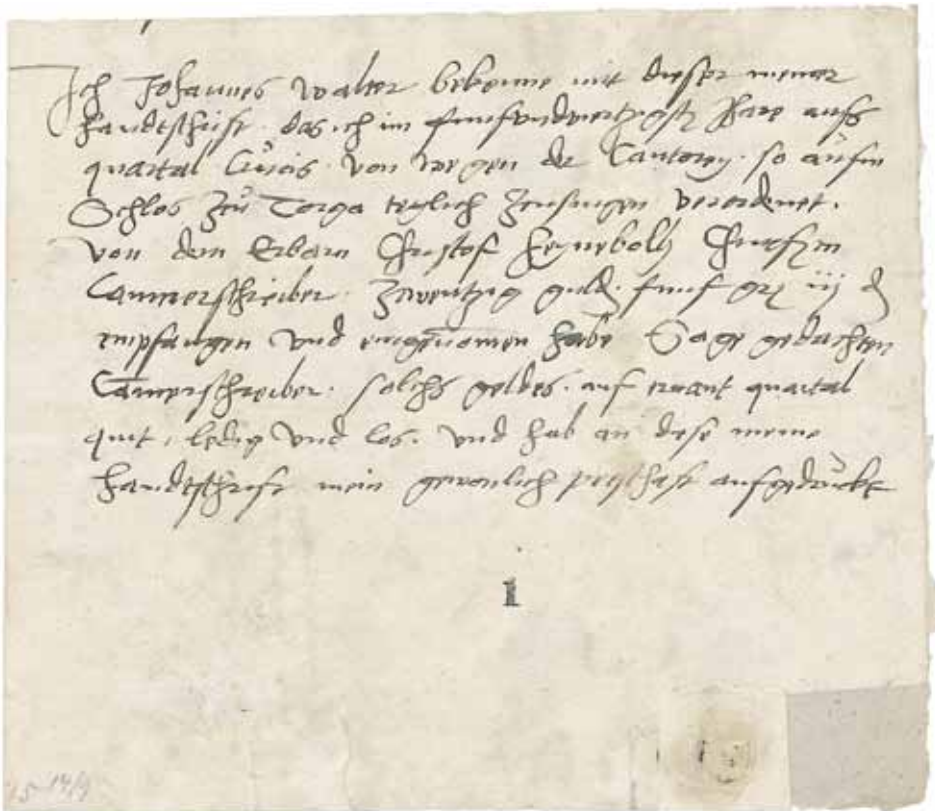 Ich Johannes Walter bekenne mit dieser meiner
handtschrift. das ich im funfundvertzigsten Jhare aufs
quartal Crucis. von wegen der Cantorey. so aufm
Schlos zu Torga teglich zusingen verordnet.
von dem Erbarn Christof
Camerschreiber. zwentzig guld. funf gr iij d
empfangen und eingenomen habe Sage gedachten
Camerschreiber. solchs geldes. auf ernant quartal
quit, ledig und los. und hab an diese meine
handtschrift mein gewonlich petzschaft aufgedruckt
1
15 14/9